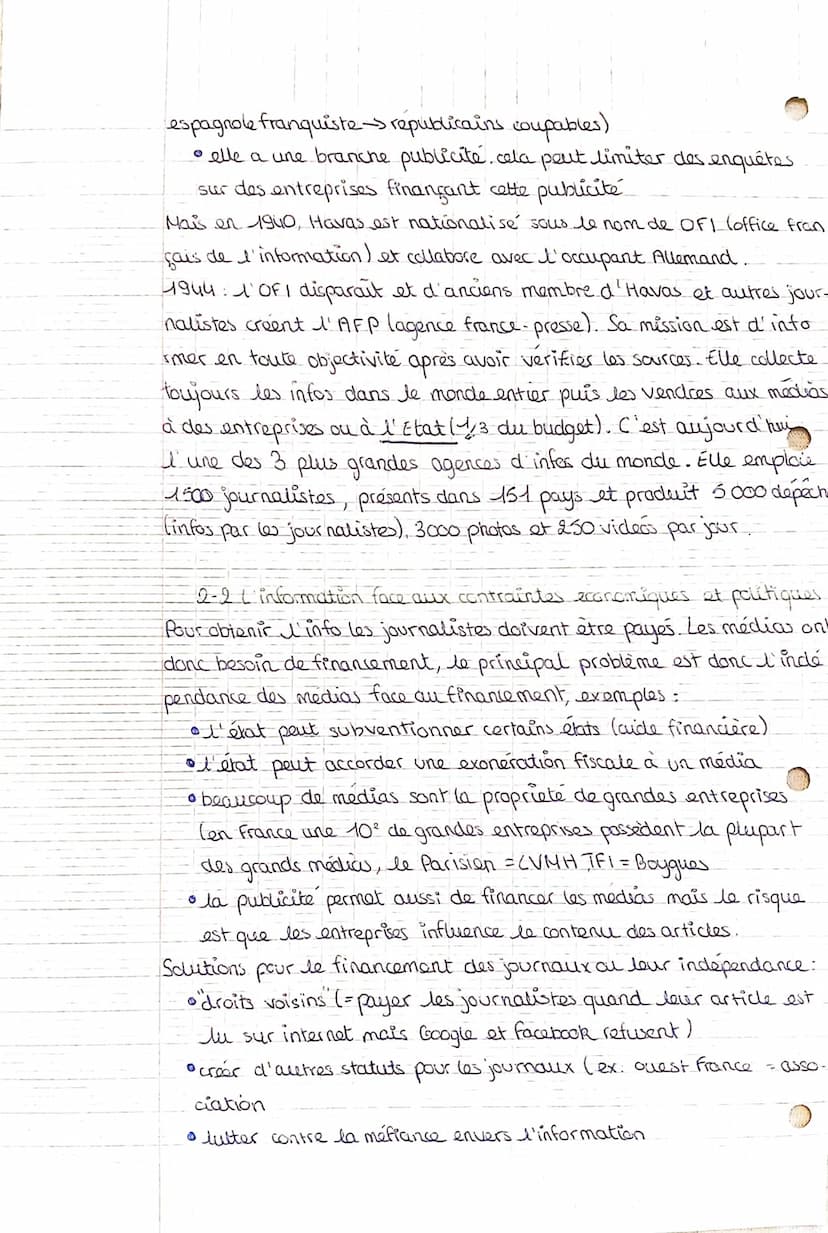 espagnole franquiste → républicains coupables)
• elle a une branche publicité. cela peut limiter des enquêtes
sur des entreprises finançant cette publicité
Mais en 1940, Havas est nationalisé sous le nom de OFI (office fran
çais de l'information) et collabore avec l'occupant Allemand.
1944 : l'OFI disparaît et d'anciens membre d'Havas et autres jour-
nalistes créent l'AFP (agence france-presse). Sa mission est d'info
rmer en toute objectivité après avoir vérifies les sources. Elle collecte
toujours les infos dans le monde entier puis les vendres aux médias
à des entreprises ou à l'Etat (1/3 du budget). C'est aujourd'hui
l'une des 3 plus grandes agences d'infos du monde. Elle emploie
1500 journalistes, présents dans 151 pays et produit 5 000 dépêch
(infos par les journalistes), 3000 photos et 250 videos par jour.
2-2 L'information face aux contraintes economiques et politiques
Pour obtenir l'info les journalistes doivent être payés. Les médias ont
donc besoin de financement, le principal problème est donc l'indé
pendance des médias face au financement, exemples :
• l'état peut subventionner certains états (aide financière)
• l'état peut accorder une exonération fiscale à un média
• beaucoup de médias sont la propriété de grandes entreprises
(en France une 10e de grandes entreprises possèdent la plupart
des grands médias, le Parisien = LVMH, TF1 = Bouygues
• la publicité permet aussi de financer les medias mais le risque
est que les entreprises influence le contenu des articles.
Solutions pour le financement des journaux ou leur indépendance :
• "droits voisins" (= payer les journalistes quand leur article est
lu sur internet mais Google et Facebook refusent)
• créér d'autres statuts pour les journaux (ex. ouest france = asso-
ciation
• lutter contre la méfiance envers l'information